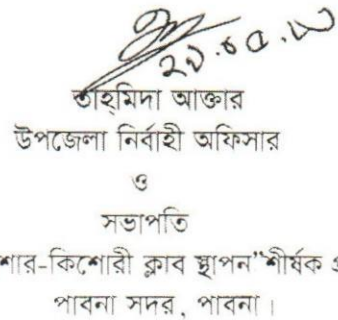 ২১.০৫.২৩
তাহমিদা আক্তার
উপজেলা নির্বাহী অফিসার
ও
সভাপতি
শার-কিশোরী ক্লাব স্থাপন”শীর্ষক
পাবনা সদর, পাবনা।